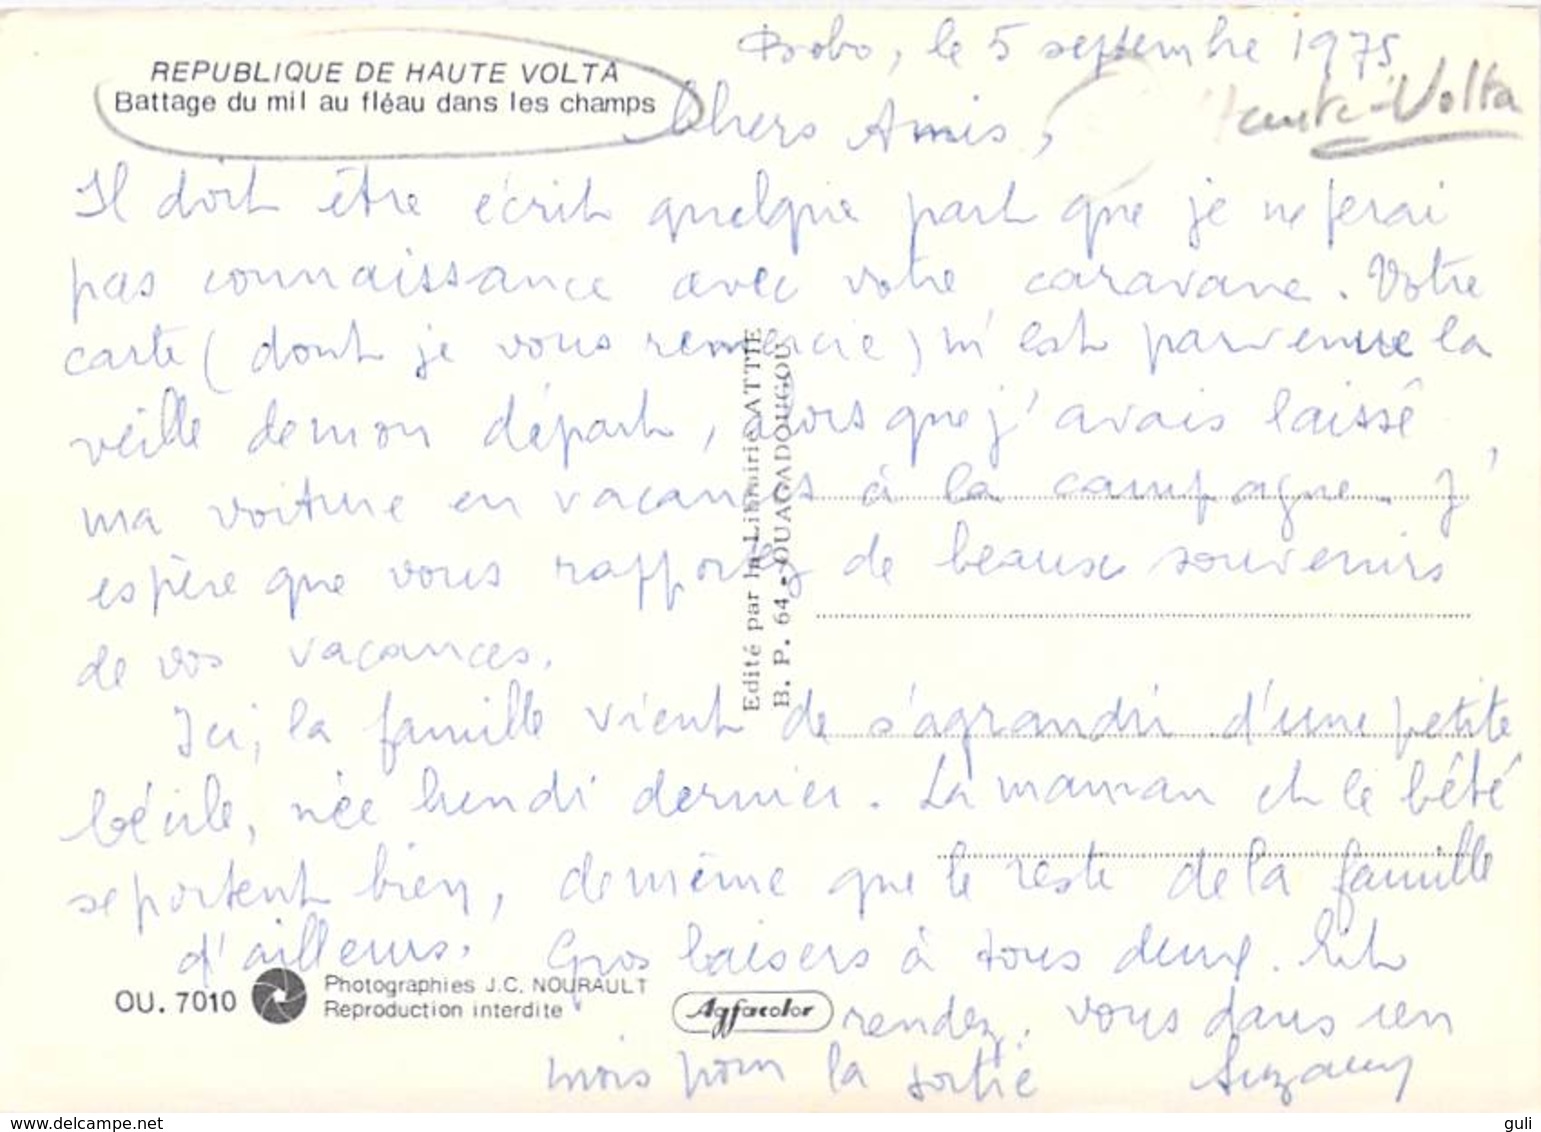 REPUBLIQUE DE HAUTE VOLTA
Battage du mil au fléau dans les champs
Bobo, le 5 septembre 1975
Haute-Volta
Chers Amis,
Il doit être écrit quelque part que je ne ferai
pas connaissance avec votre caravane. Votre
carte (dont je vous remercie) m'est parvenue la
veille de mon départ, alors que j'avais laissé
ma voiture en vacances à la campagne. J'
espère que vous rapportez de beaux souvenirs
de vos vacances.
Ici, la famille vient de s'agrandir d'une petite
Cécile, née lundi dernier. La maman et le bébé
se portent bien, de même que le reste de la famille
d'ailleurs. Gros baisers à tous deux. Et
rendez-vous dans un
mois pour la sortie Suzanny
Edité par la Librairie ATTIE
B. P. 64 - OUAGADOUGOU
OU. 7010
Photographies J.C. NOURAULT
Reproduction interdite
Agfacolor
www.delcampe.net
guli